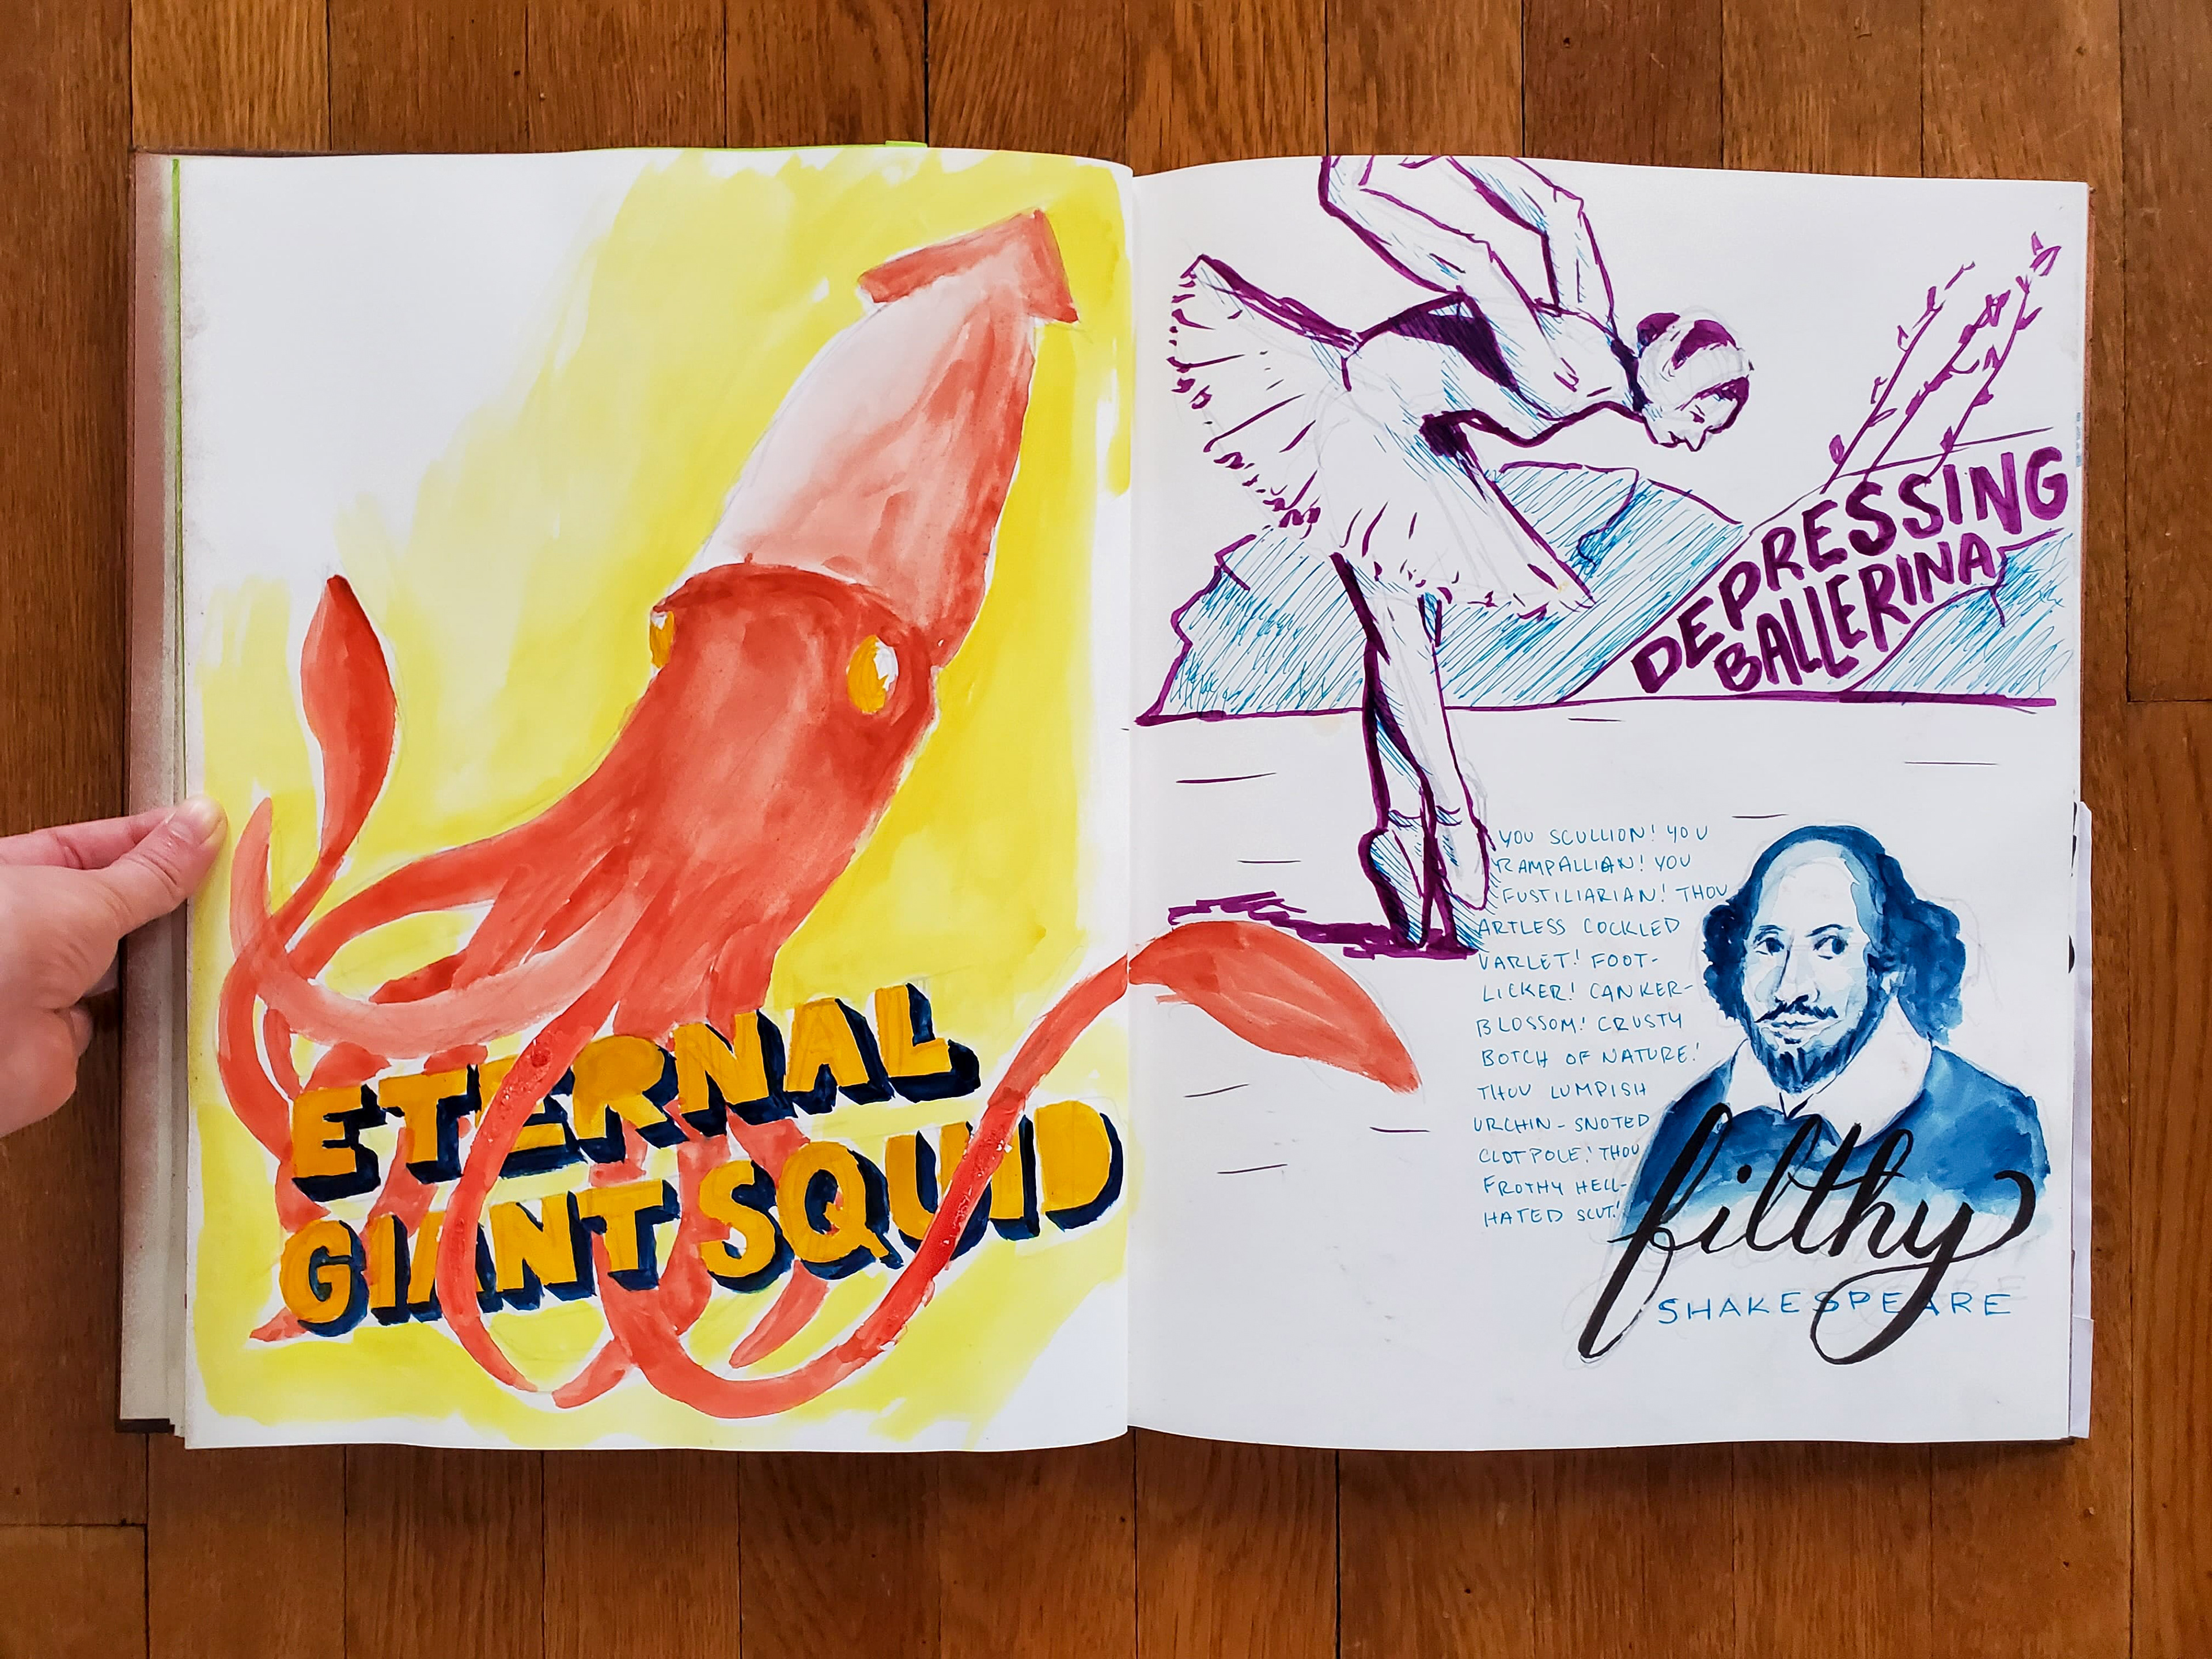 ETERNAL
GIANT SQUID
DEPRESSING
BALLERINA
YOU SCULLION! YOU
RAMPALLIAN! YOU
FUSTILIARIAN! THOU
ARTLESS COCKLED
VARLET! FOOT-
LICKER! CANKER-
BLOSSOM! CRUSTY
BOTCH OF NATURE!
THOU LUMPISH
URCHIN-SNOTED
CLOTPOLE! THOU
FROTHY HELL-
HATED SCUT!
filthy
SHAKESPEARE